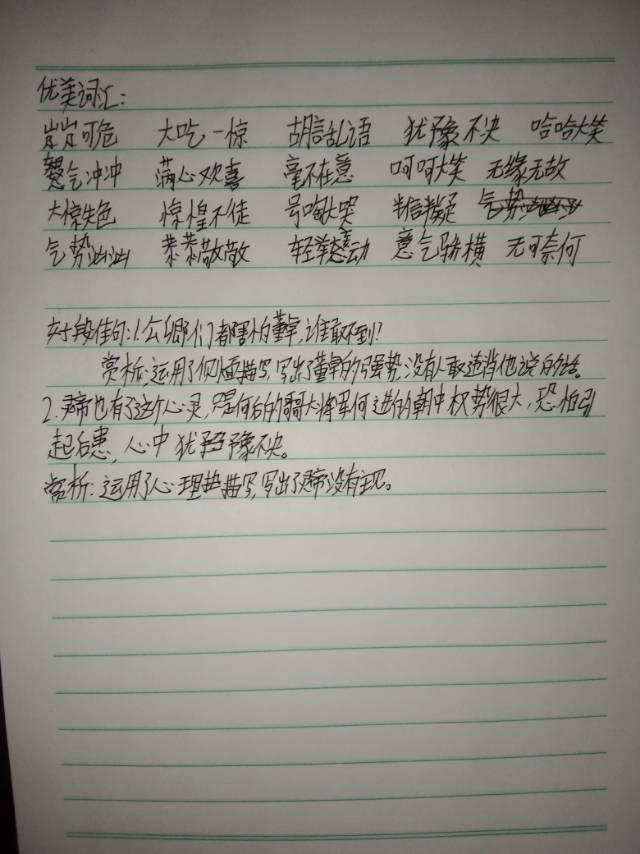 优美词汇:
岌岌可危 大吃一惊 胡言乱语 犹豫不决 哈哈大笑
怒气冲冲 满心欢喜 毫不在意 呵呵大笑 无缘无故
大惊失色 惊惶不徒 号啕大哭 半信半疑
气势汹汹 恭恭敬敬 轻举妄动 意气骄横 无可奈何
好段佳句:1.公卿们都害怕董卓,谁敢不到!
赏析:运用了侧面描写,写出了董卓的强势,没有人敢违背他说的话。
2.灵帝也有了这个心灵,只是何后的哥哥大将军何进的朝中权势很大,恐怕引
起后患,心中犹豫不决。
赏析:运用了心理描写,写出了灵帝没有主见。